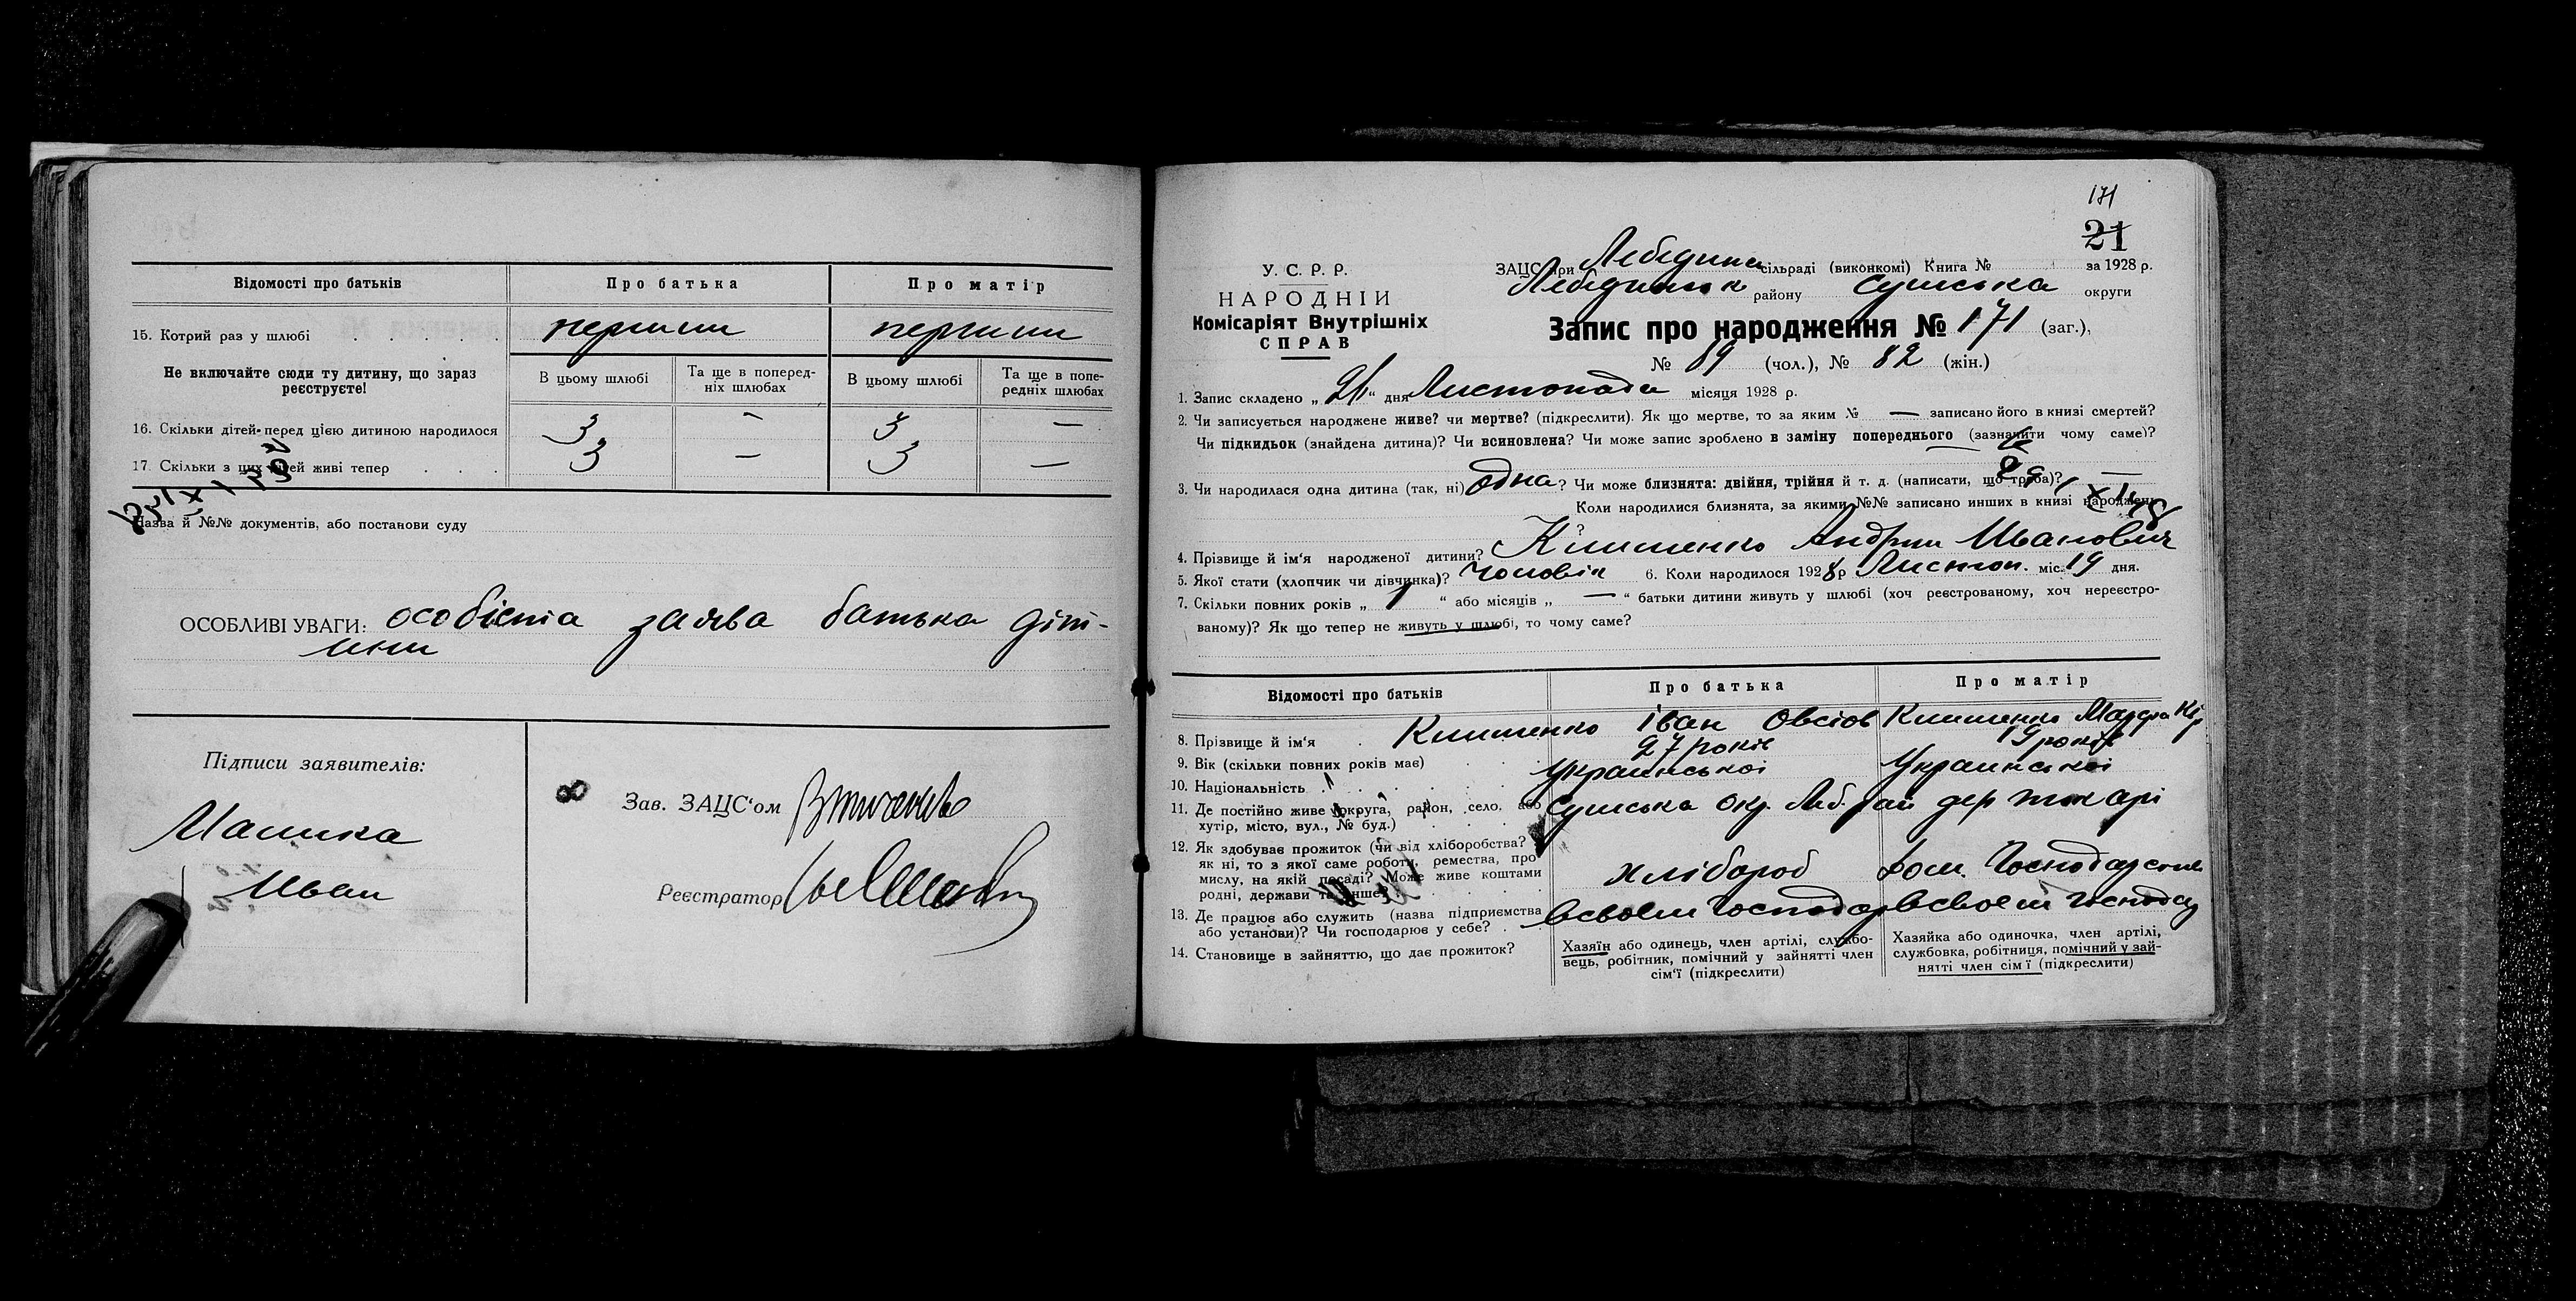 Відомості про батьків
Про батька
Про матір
15. Котрий раз у шлюбі
перший
перший
Не включайте сюди ту дитину, що зараз реєструєте!
В цьому шлюбі
Та ще в поперед-
ніх шлюбах
В цьому шлюбі
Та ще в попе-
редніх шлюбах
16. Скільки дітей перед цією дитиною народилося
3 — 3 —
17. Скільки з цих дітей живі тепер
3 — 3 —
Назва й №№ документів, або постанови суду
ОСОБЛИВІ УВАГИ: особіста заява батька діт-
ини
Підписи заявителів:
Иван
Зав. ЗАЦС‘ом
Реєстратор
171
21
У. С. Р. Р.
НАРОДНІЙ
Комісаріят Внутрішніх
СПРАВ
ЗАЦС при Лебедина сільраді (виконкомі) Книга № за 1928 р.
району Сумська округи
Запис про народження № 171 (заг.),
№ 89 (чол.), № 82 (жін.)
1. Запис складено „ “ дня Листопада місяця 1928 р.
2. Чи записується народжене живе? чи мертве? (підкреслити). Як що мертве, то за яким № — записано його в книзі смертей?
Чи підкидьок (знайдена дитина)? Чи всиновлена? Чи може запис зроблено в заміну попереднього (зазначити чому саме)?
3. Чи народилася одна дитина (так, ні) одна? Чи може близнята: двійня, трійня й т. д. (написати, що треба)? —
Коли народилися близнята, за якими №№ записано инших в книзі народжень
4. Прізвище й ім‘я народженої дитини? Андрии Иванович
5. Якої стати (хлопчик чи дівчинка)? чоловік 6. Коли народилося 1928 р Листоп. міс. 19 дня.
7. Скільки повних років „ 1 “ або місяців „ — “ батьки дитини живуть у шлюбі (хоч реєстрованому, хоч нереєстро-
ваному)? Як що тепер не живуть у шлюбі, то чому саме?
Відомості про батьків
Про батька
Про матір
8. Прізвище й ім‘я
Іван Овсіов
9. Вік (скільки повних років має)
27 років
19 років
10. Національність
Украинськоі
Украинськоі
11. Де постійно живе (округа, район, село, або
хутір, місто, вул., № буд.)
Сумська окр. Леб. рай дер токарі
12. Як здобуває прожиток (чи від хліборобства?
як ні, то з якої саме роботи, ремества, про
мислу, на якій посаді? Може живе коштами
родні, держави та инше?
хлібороб
дом. Господарство
13. Де працює або служить (назва підприємства
або установи)? Чи господарює у себе?
всвоем господар
всвоем господар
14. Становище в зайняттю, що дає прожиток?
Хазяїн або одинець, член артілі, службо-
вець, робітник, помічний у зайнятті член
сім‘ї (підкреслити)
Хазяйка або одиночка, член артілі,
службовка, робітниця, помічний у зай-
нятті член сім‘ї (підкреслити)